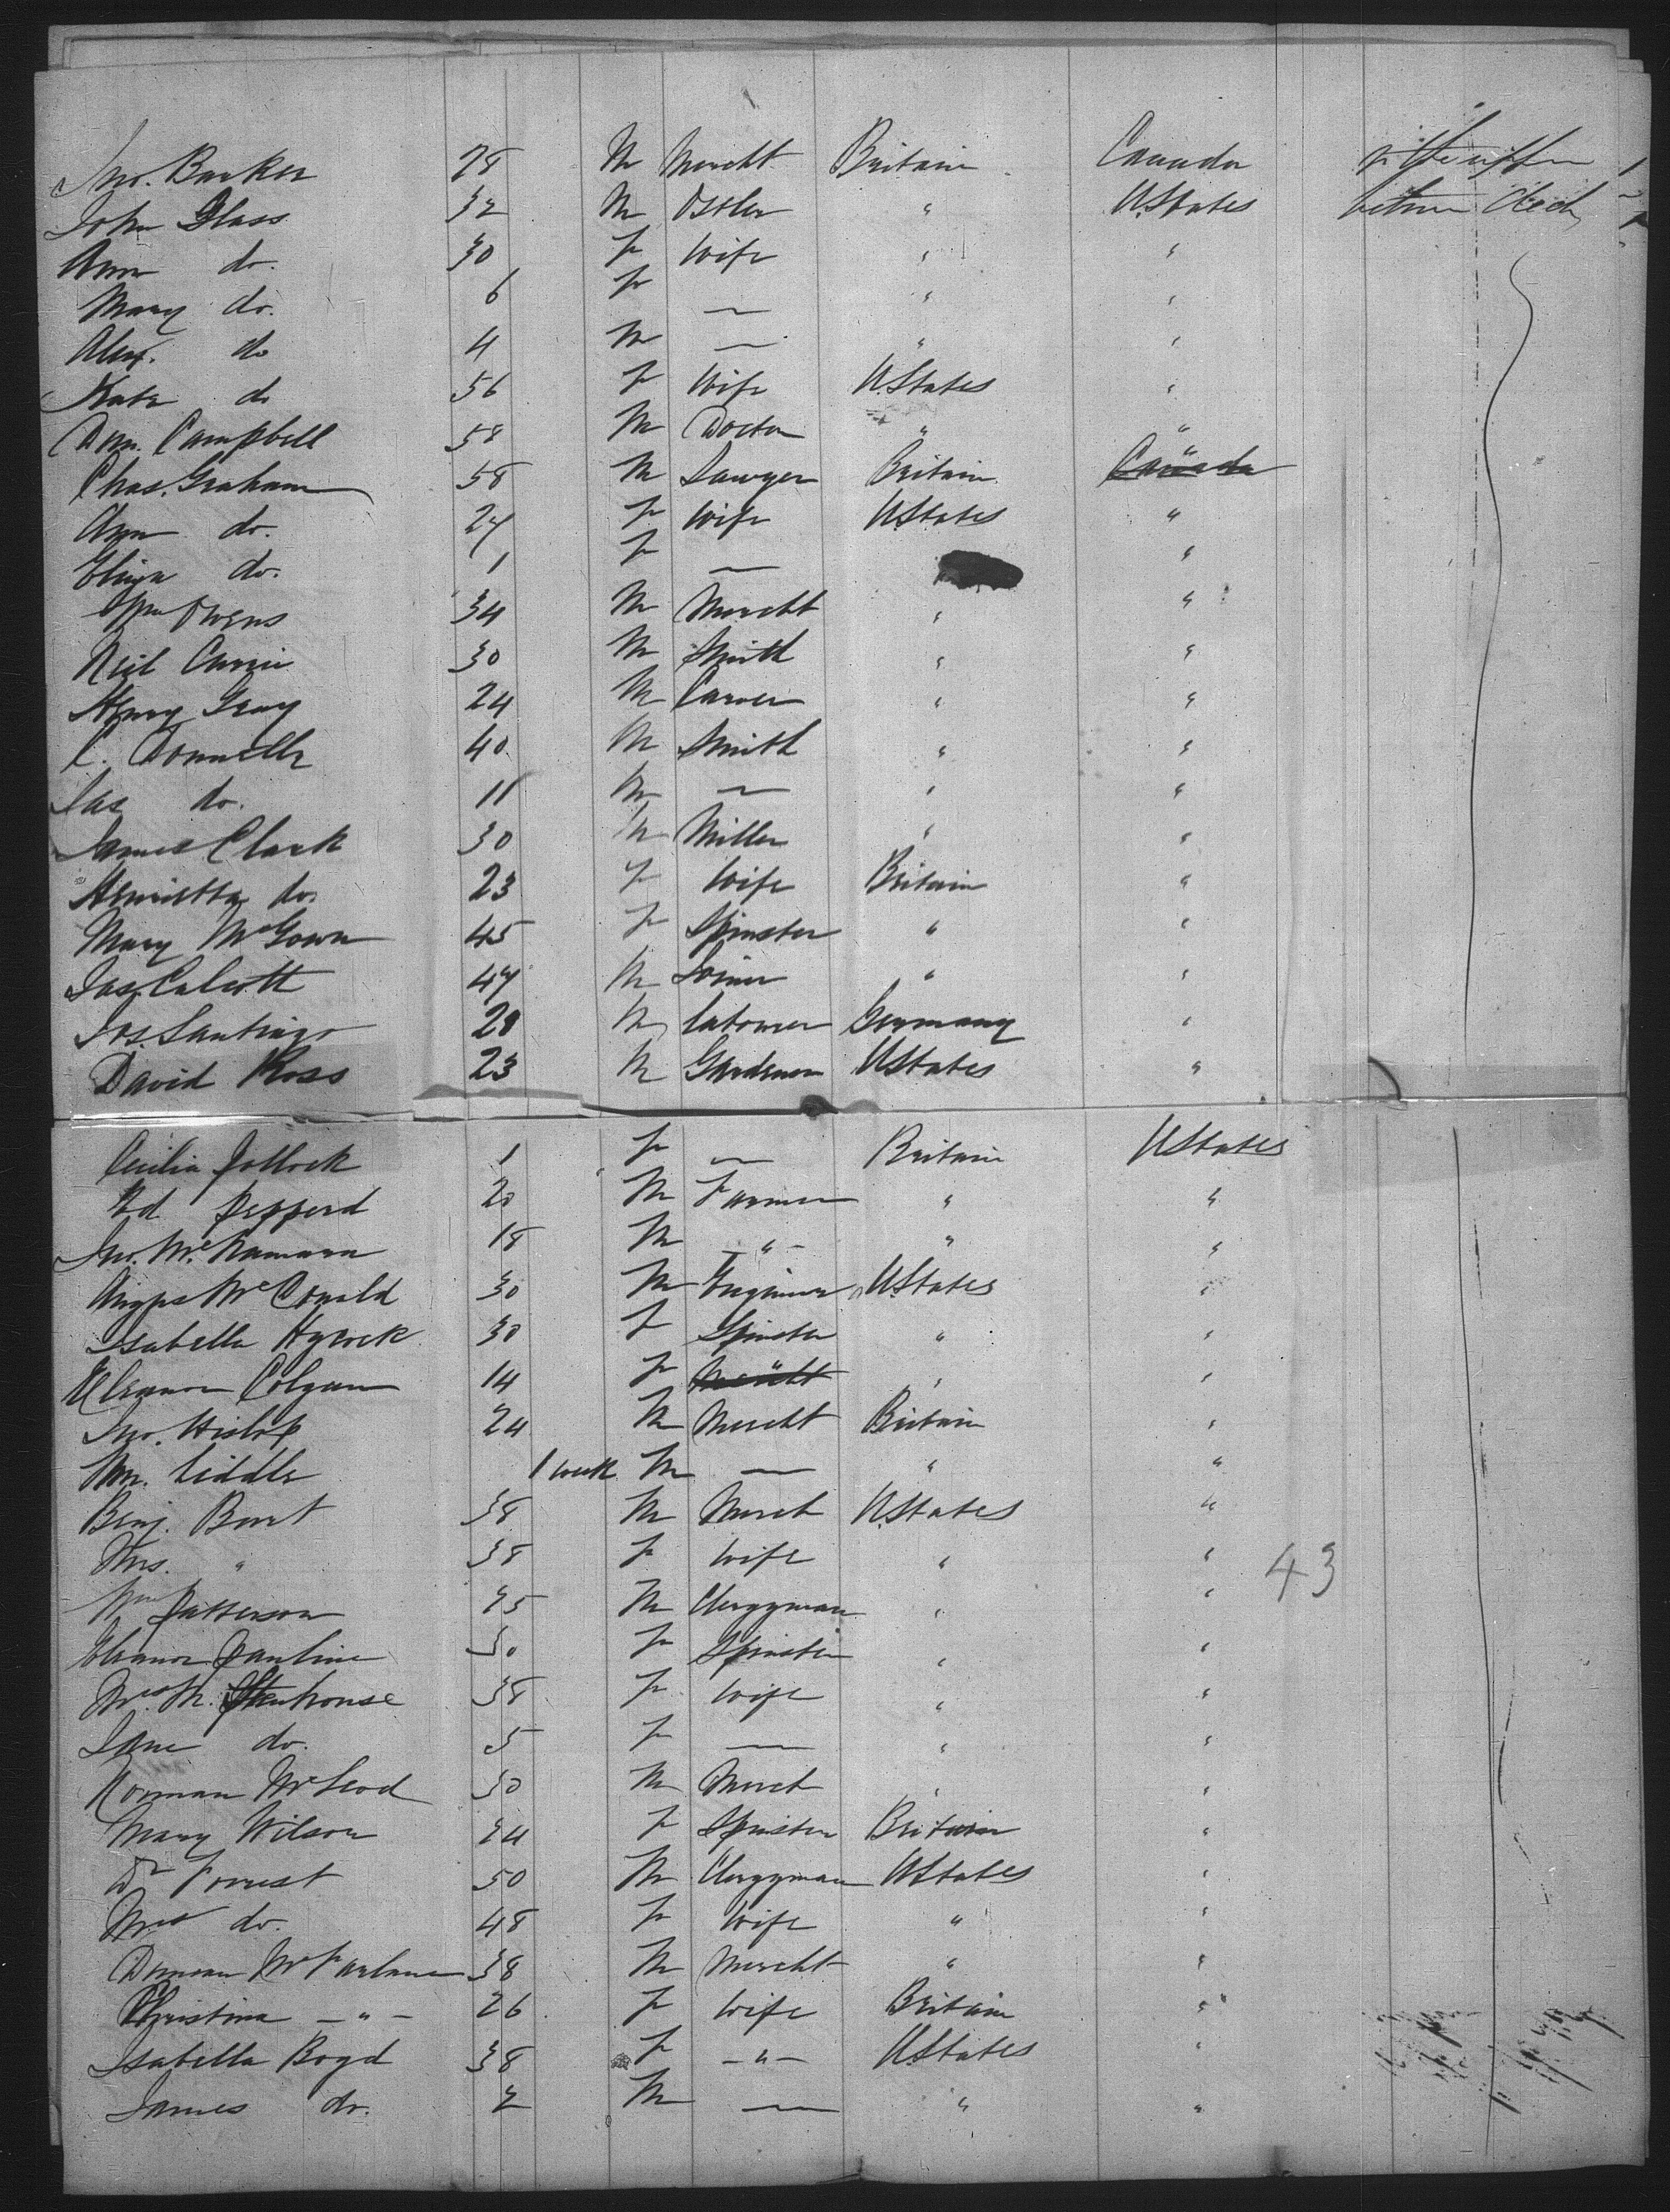 Jno. Barker 28 M Mercht Britain Canada
John Glass 32 M Ostler " UStates between Deck
Ann do. 30 F Wife " "
Mary do. 6 F — " "
Alex. do 4 M — " "
Kate do 56 F Wife UStates "
Dun. Campbell 58 M Doctor " "
Chas. Graham 58 M Sawyer Britain Canada
Ann do. 27 F Wife UStates "
Eliza do. 1 F — "
Wm Owens 34 M Mercht " "
Neil Currie 30 M Smith " "
Henry Gray 24 M Carver " "
C. Donnelly 40 M Smith " "
Jas do. 11 M — " "
James Clark 30 M Miller " "
Henrietta do. 23 F Wife Britain "
Mary McGown 45 F Spinster " "
Jas. Calcott 47 M Joiner " "
Jos. Santiago 28 M Labourer Germany "
David Ross 23 M Gardener UStates "
Cecilia Pollock 1 F — Britain UStates
Ed Pepperd 20 M Farmer " "
Jno. McNamara 18 M — " — " "
Angus McDonald 30 M Engineer UStates "
Isabella Hycock 30 F Spinster " "
Eleanor Colgan 14 F Mercht " "
Jno. Hislop 24 M Mercht Britain "
Wm. Liddle 1 week M — " "
Benj. Burt 38 M Merch UStates "
Mrs. " 38 F Wife " "
43
Wm Patterson 25 M Clergyman " "
Eleanor Pauline 30 F Spinster " "
Mrs M. Stenhouse 38 F Wife " "
Jane do. 5 F — " "
Norman McLeod 30 M Merch " "
Mary Wilson 24 F Spinster Britain "
Dr Forrest 50 M Clergyman UStates "
Mrs do. 48 F Wife " "
Duncan McFarlane 38 M Mercht " "
Christina — " — 26 F Wife Britain "
Isabella Boyd 38 F — " — UStates "
James do. 2 M — " "